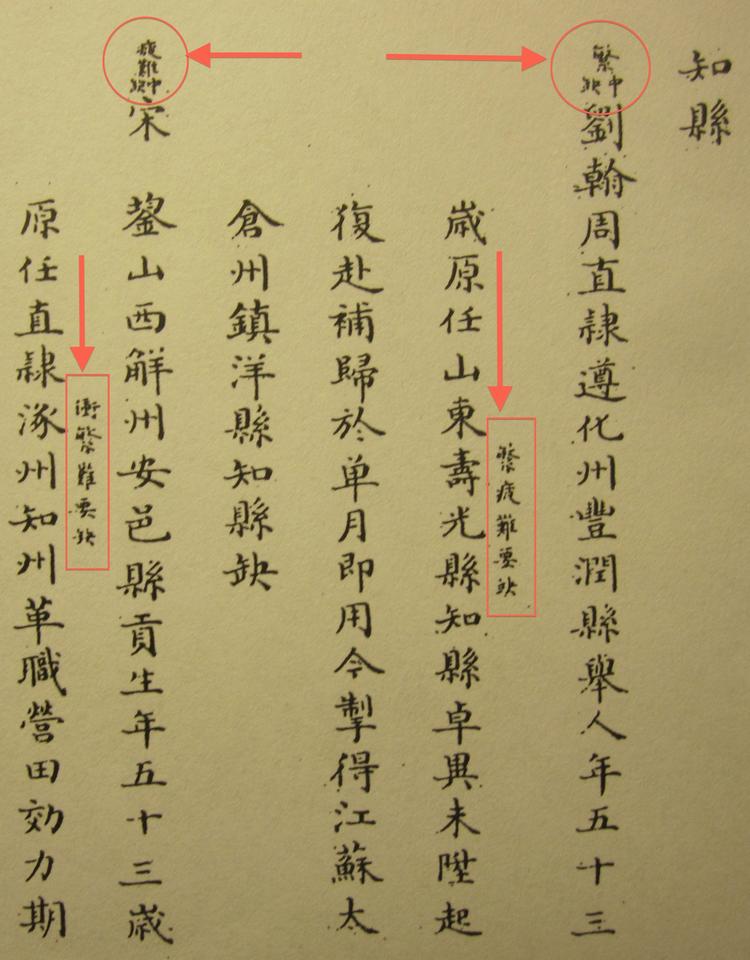 知縣
繁中缺
劉翰周直隸遵化州豐潤縣舉人年五十三
繁疲難要缺
歲原任山東壽光縣知縣卓異未陞起
復赴補歸於单月即用今掣得江蘇太
倉州鎮洋縣知縣缺
疲難中缺
宋鋆山西解州安邑縣貢生年五十三歲
衝繁難要缺
原任直隸涿州知州革職營田効力期